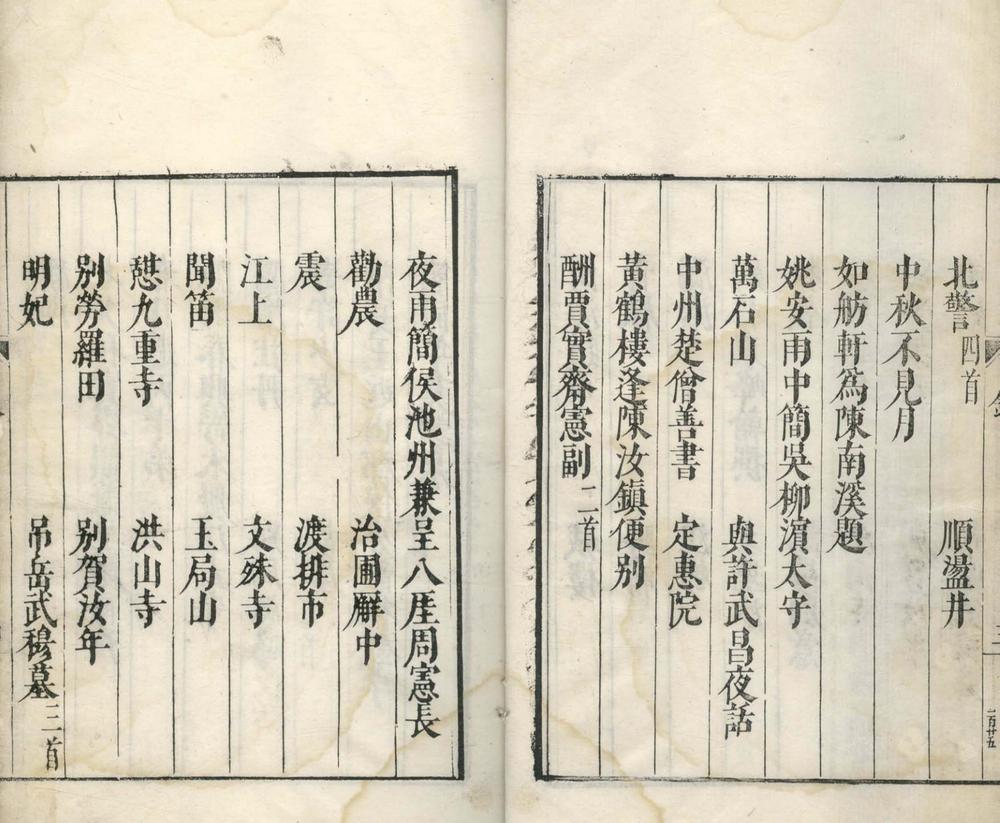 北警四首　順盪井
中秋不見月
如舫軒為陳南溪題
姚安雨中簡吳柳濵太守
萬石山　與許武昌夜話
中州楚僧善書　定惠院
黃鶴樓逢陳汝鎮便别
酬賈實齋憲副二首
夜雨簡侯池州兼呈八厓周憲長
勸農　治圃廨中
震　渡排市
江上　文殊寺
聞笛　玉局山
憇九重寺　洪山寺
别勞羅田　别賀汝年
明妃　吊岳武穆墓二首
百廿五